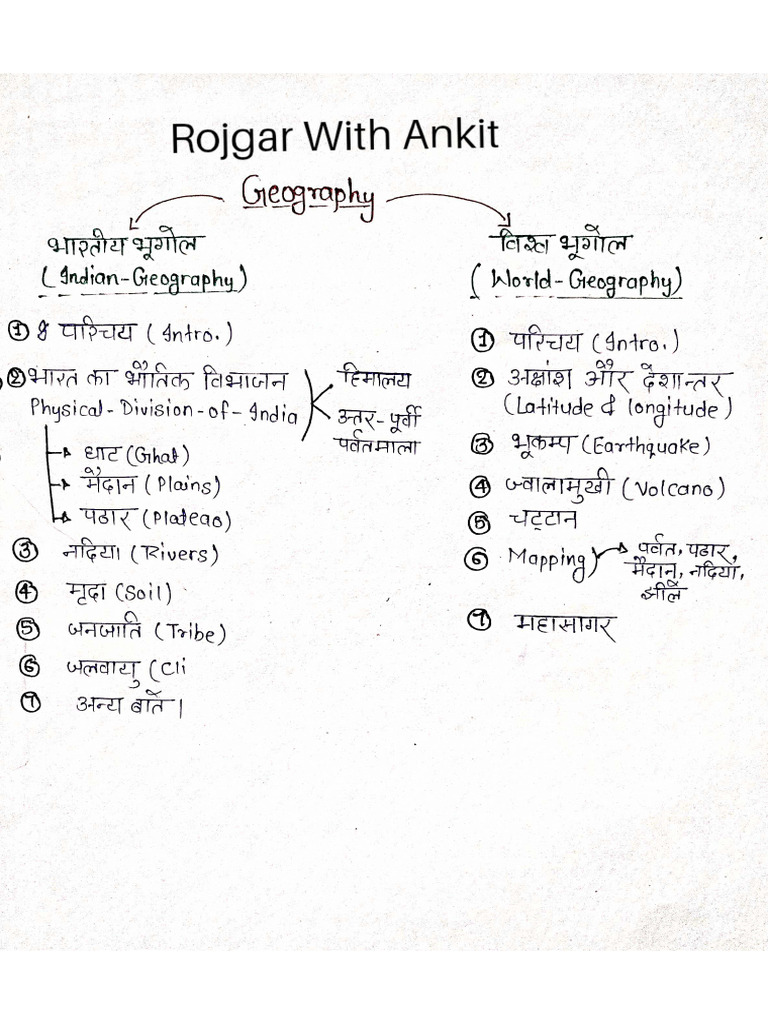 Rojgar With Ankit
Geography
भारतीय भूगोल
(Indian-Geography)
① परिचय (Intro.)
② भारत का भौतिक विभाजन
Physical-Division-of-India
हिमालय
उत्तर-पूर्वी
पर्वतमाला
घाट (Ghat)
मैदान (Plains)
पठार (Plateao)
③ नदिया (Rivers)
④ मृदा (Soil)
⑤ जनजाति (Tribe)
⑥ जलवायु (Cli
⑦ अन्य बातें।
विश्व भूगोल
(World-Geography)
① परिचय (Intro.)
② अक्षांश और देशान्तर
(Latitude & longitude)
③ भूकम्प (Earthquake)
④ ज्वालामुखी (Volcano)
⑤ चट्टान
⑥ Mapping) पर्वत, पठार,
मैदान, नदियाँ,
झीलें
⑦ महासागर